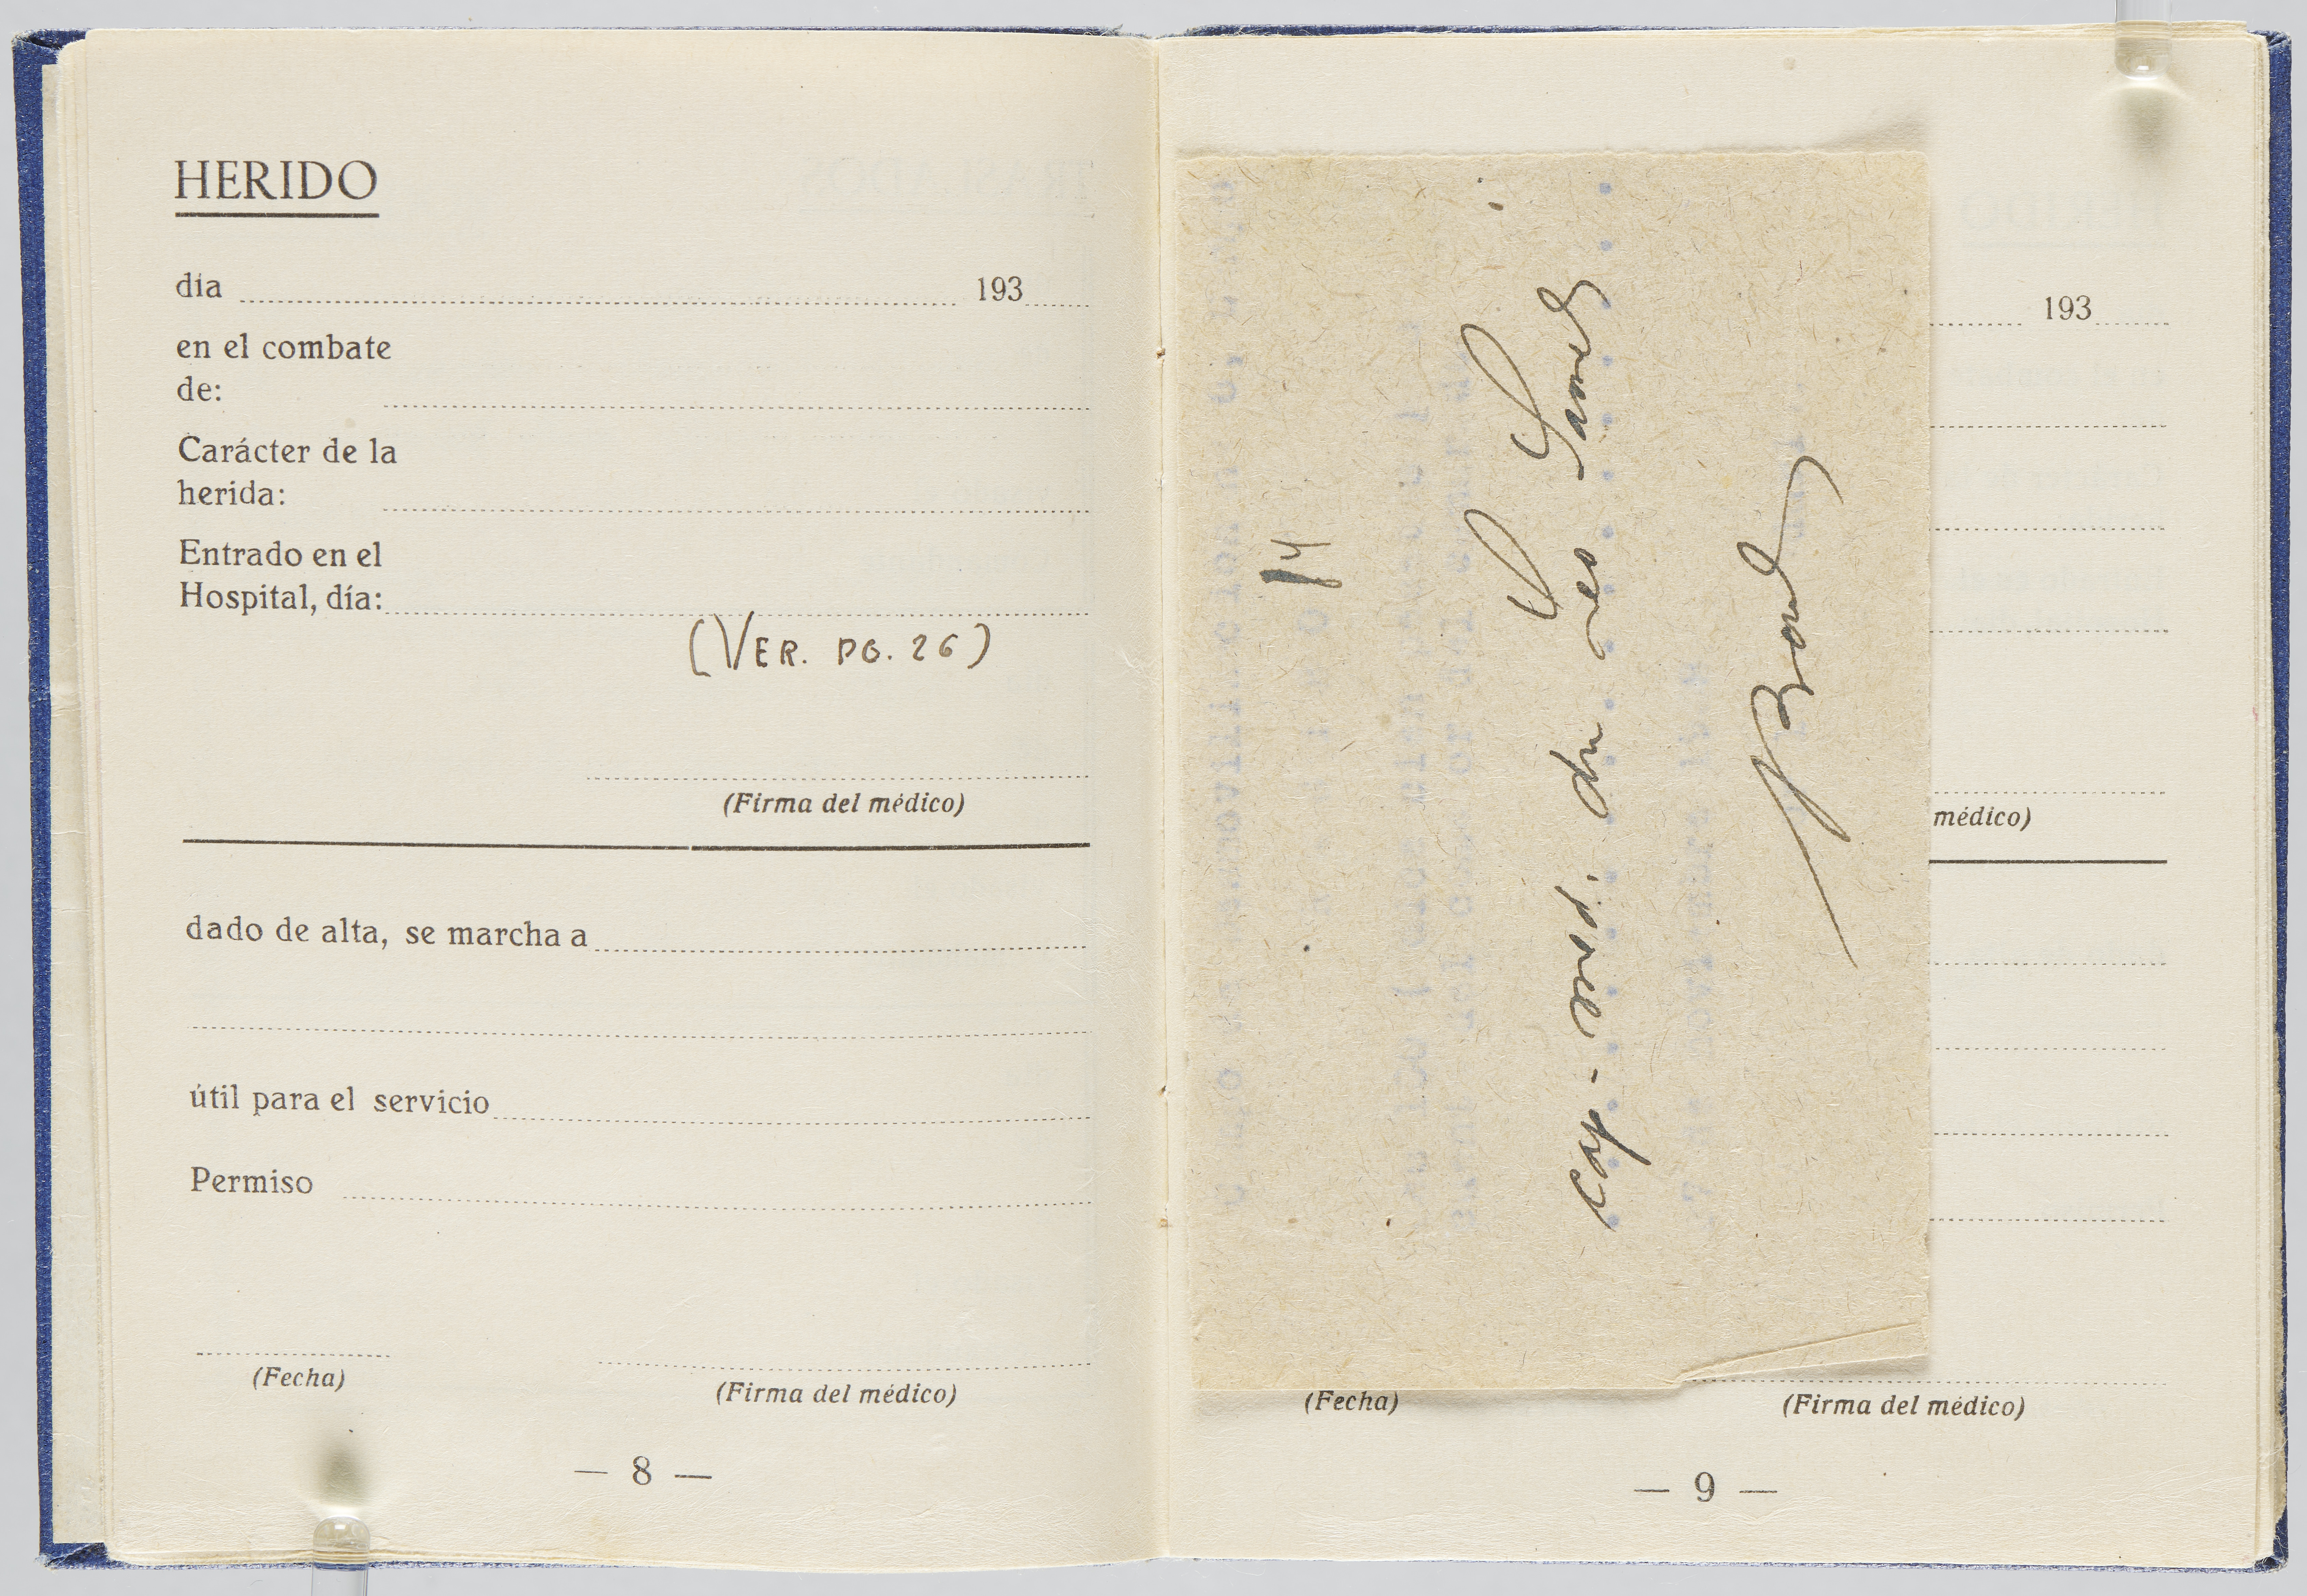 HERIDO
día 193
en el combate
de:
Carácter de la
herida:
Entrado en el
Hospital, día:
(VER. PG. 26)
(Firma del médico)
dado de alta, se marcha a
útil para el servicio
Permiso
(Fecha)
(Firma del médico)
— 8 —
14
193
médico)
(Fecha)
(Firma del médico)
— 9 —